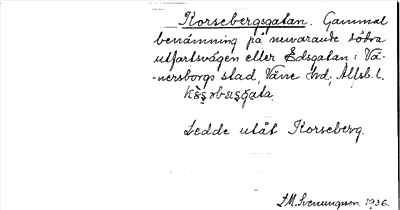 Korsebergsgatan. Gammal
benämning på nuvarande södra
utfartsvägen eller Edsgatan i Vä-
-nersborgs stad, Väne hd, Älfsb. l.
Ledde utåt Korseberg.
1936.